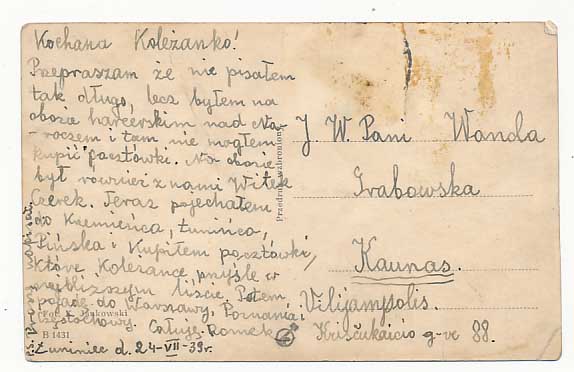 Kochana Koleżanko!
Przepraszam że nie pisałem
tak długo, lecz byłem na
obozie harcerskim nad Na-
-roczem i tam nie mogłem
kupić pocztówki. Na obozie
był również z nami Witek
Czerek. Teraz pojechałem
do Krzemieńca, Łunińca,
Pińska i Kupiłem pocztówki,
które Koleżance prześlę w
najbliższym liście. Potem
pojadę do Warszawy, Poznania i
Częstochowy. Całuję Romek
Łuniniec d. 24-VII-39r.
Przedruk wzbroniony
Fot. Jankowski
B 1431
J W. Pani Wanda
Grabowska
Kaunas.
Vilijampolis.
Kriščukaicio g-vė 88.